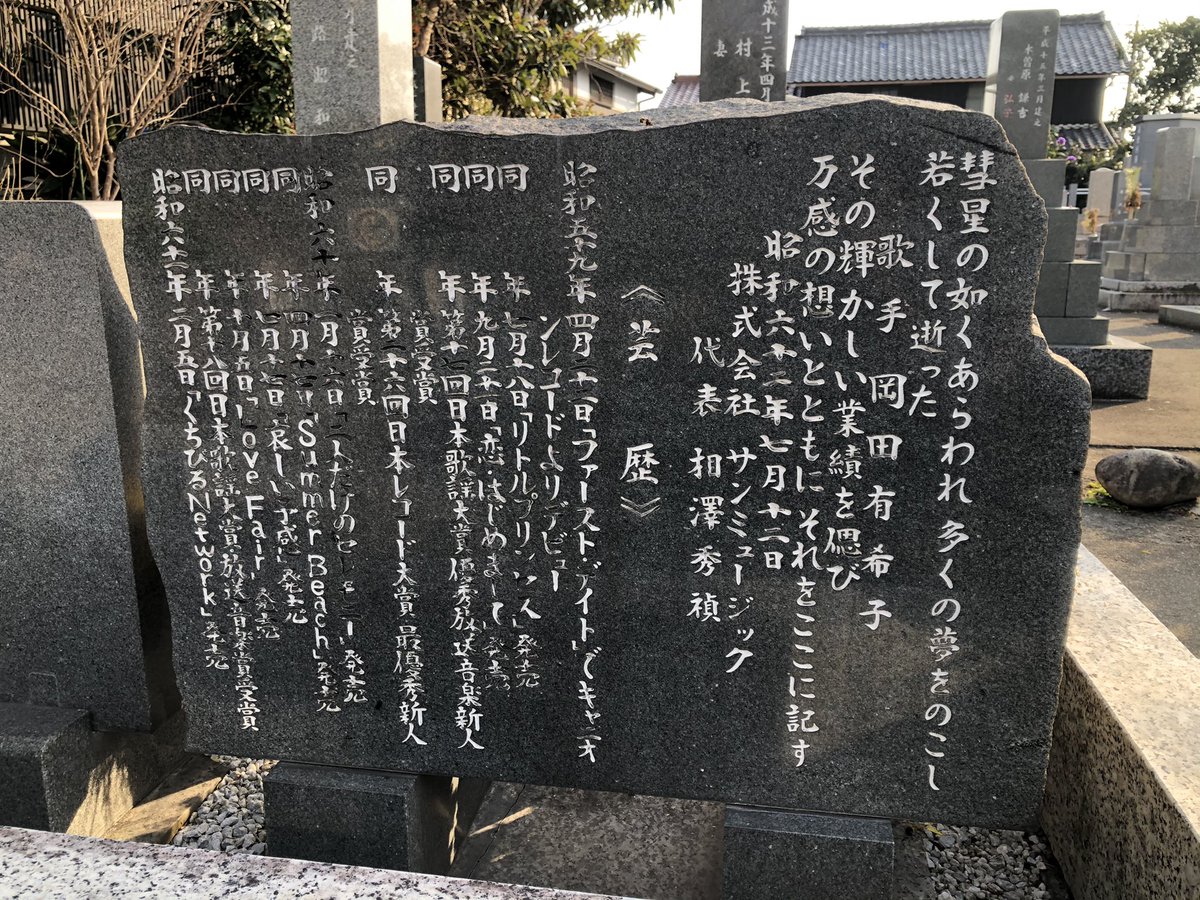 彗星の如くあらわれ 多くの夢をのこし
若くして逝った
歌手 岡田有希子
その輝かしい業績を偲び
万感の想いとともに それをここに記す
昭和六十二年七月十二日
株式会社 サンミュージック
代表 相澤秀禎
《芸 歴》
昭和五十九年 四月二十一日「ファースト・デイト」でキャニオ
ンレコードよりデビュー
同 年 七月十八日「リトルプリンセス」発売
同 年 九月二十一日「恋はじめまして」発売
同 年 第十五回日本歌謡大賞 優秀放送音楽新人
賞受賞
同 年 第二十六回日本レコード大賞 最優秀新人
賞受賞
昭和六十年 一月十六日「二人だけのセレモニー」発売
同 年 四月十七日「Summer Beach」発売
同 年 七月十七日「哀しい予感」発売
同 年 十月五日「Love Fair」発売
同 年 第十六回日本歌謡大賞・放送音楽賞受賞
昭和六十一年 二月五日「くちびるNetwork」発売
成十三年四月
村上
妻